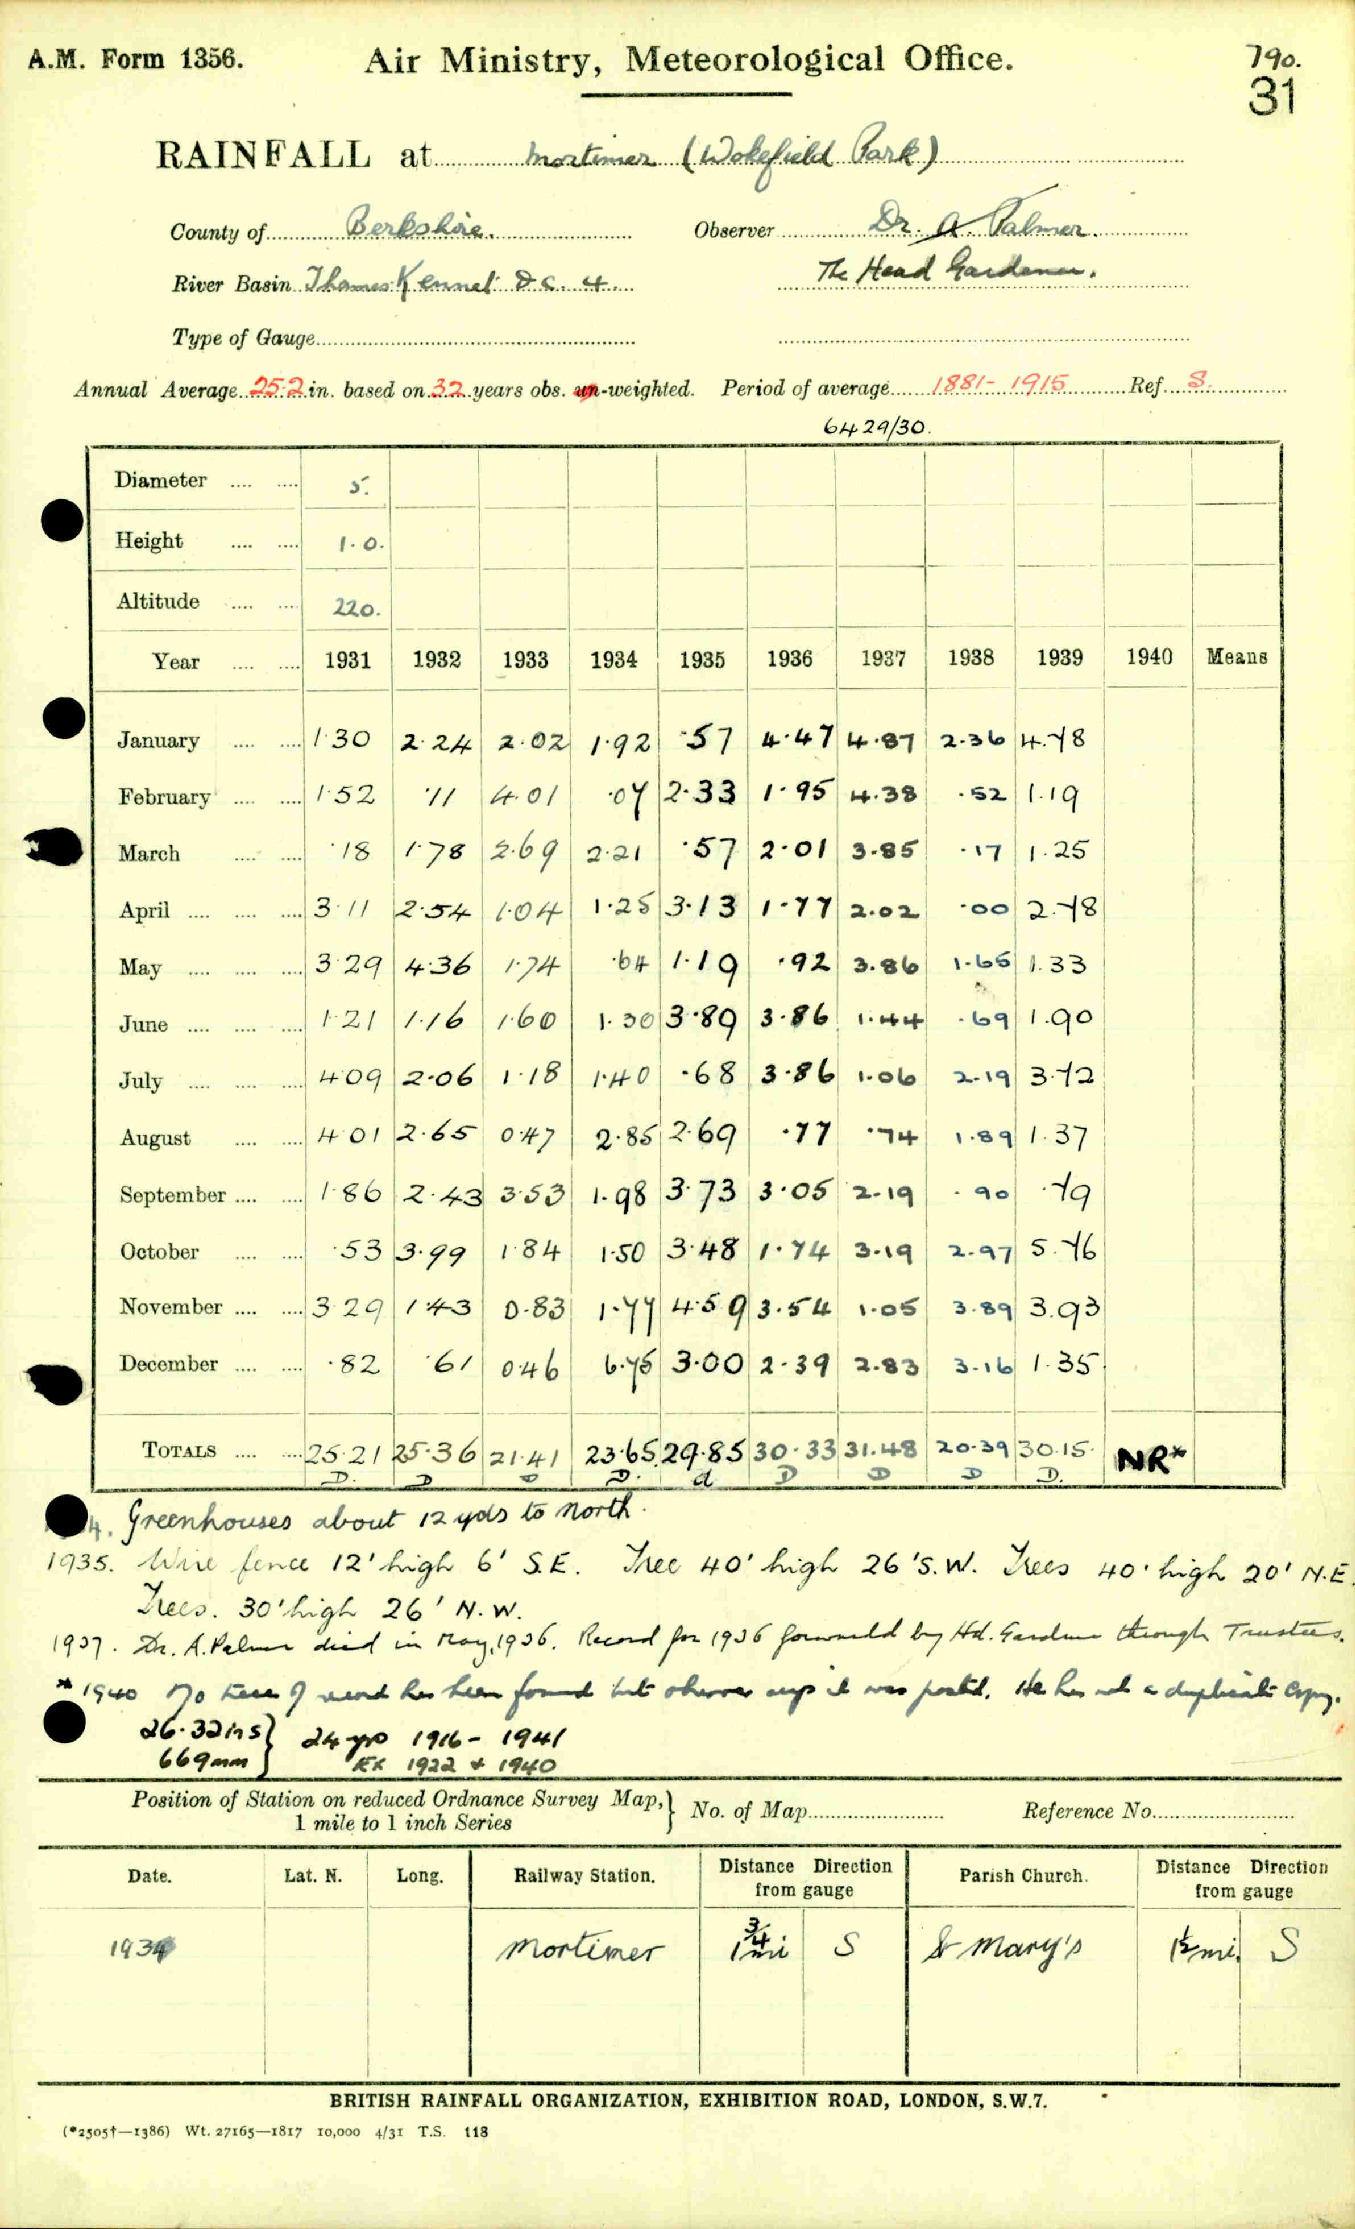 A.M. Form 1356. Air Ministry, Meteorological Office. 790.
31
RAINFALL at Mortimer (Wokefield Park)
County of Berkshire. Observer Dr. A. Palmer.
River Basin Thames Kennet D.C. 4. The Head Gardener.
Type of Gauge
Annual Average 25.2 in. based on 32 years obs. un-weighted. Period of average 1881-1915 Ref. S.
6429/30.
Diameter 5.
Height 1.0.
Altitude 220.
Year 1931 1932 1933 1934 1935 1936 1937 1938 1939 1940 Means
January 1.30 2.24 2.02 1.92 .57 4.47 4.87 2.36 4.78
February 1.52 .11 4.01 .07 2.33 1.95 4.38 .52 1.19
March .18 1.78 2.69 2.21 .57 2.01 3.85 .17 1.25
April 3.11 2.54 1.04 1.25 3.13 1.77 2.02 .00 2.78
May 3.29 4.36 1.74 .64 1.19 .92 3.86 1.65 1.33
June 1.21 1.16 1.60 1.30 3.89 3.86 1.44 .69 1.90
July 4.09 2.06 1.18 1.40 .68 3.86 1.06 2.19 3.72
August 4.01 2.65 0.47 2.85 2.69 .77 .74 1.89 1.37
September 1.86 2.43 3.53 1.98 3.73 3.05 2.19 .90 .79
October .53 3.99 1.84 1.50 3.48 1.74 3.19 2.97 5.76
November 3.29 1.43 0.83 1.77 4.59 3.54 1.05 3.89 3.93
December .82 .61 0.46 6.75 3.00 2.39 2.83 3.16 1.35
TOTALS 25.21 25.36 21.41 23.65 29.85 30.33 31.48 20.39 30.15 NR*
D. D D D. d D D D D.
4. Greenhouses about 12 yds to North.
1935. Wire fence 12' high 6' S.E. Tree 40' high 26' S.W. Trees 40' high 20' N.E.
Trees. 30' high 26' N.W.
1937. Dr. A. Palmer died in May, 1936. Record for 1936 forwarded by Hd. Gardener through Trustees.
* 1940 No trace of record has been found but observer says it was posted. He has not a duplicate copy.
26.32 ins } 24 yrs 1916 - 1941
669mm } Ex 1922 + 1940
Position of Station on reduced Ordnance Survey Map, } No. of Map Reference No.
1 mile to 1 inch Series
Date. Lat. N. Long. Railway Station. Distance Direction from gauge Parish Church. Distance Direction from gauge
1934 Mortimer 1¾ mi S St Mary's 1½ mi. S
BRITISH RAINFALL ORGANIZATION, EXHIBITION ROAD, LONDON, S.W.7.
(*2505†—1386) Wt. 27165—1817 10,000 4/31 T.S. 118